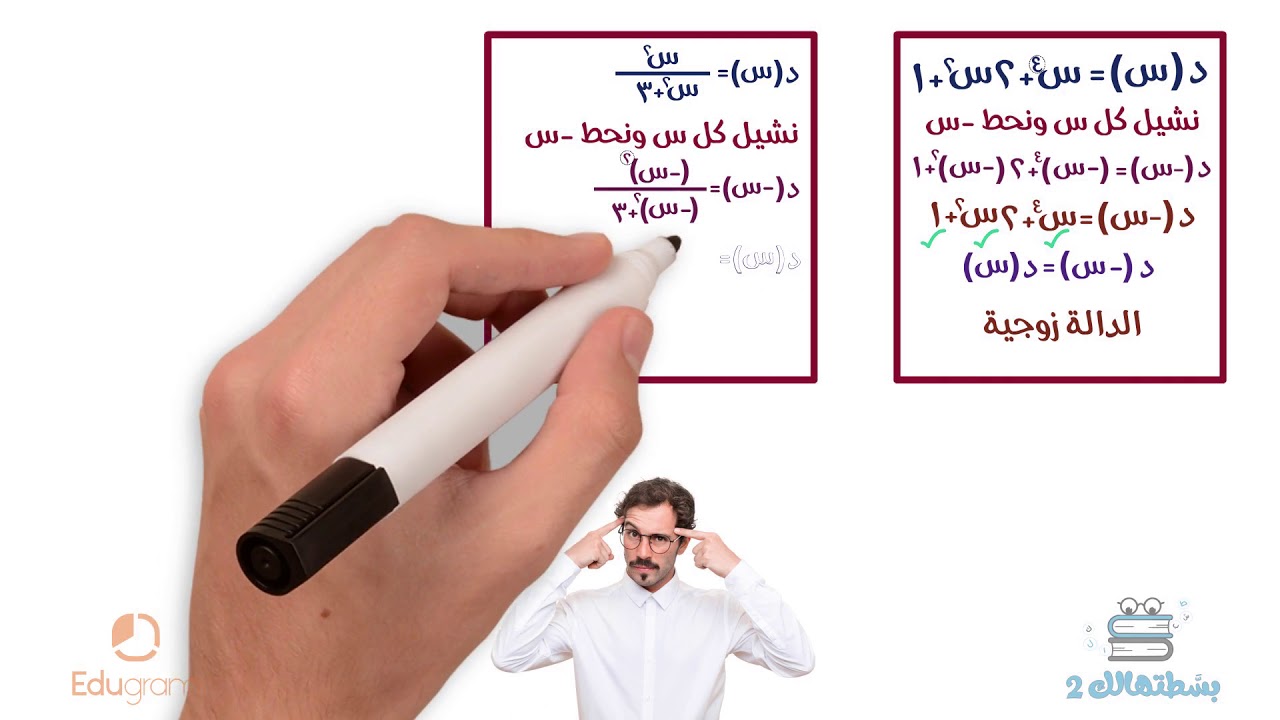 د(س) = س٤+٢س٢+١
نشيل كل س ونحط -س
د(-س) = (-س)٤+٢(-س)٢+١
د(-س) = س٤+٢س٢+١
د(-س) = د(س)
الدالة زوجية
د(س) = س٢ / س٢+٣
نشيل كل س ونحط -س
د(-س) = (-س)٢ / (-س)٢+٣
د(س) =
Edugram
بسَّطتهالك 2